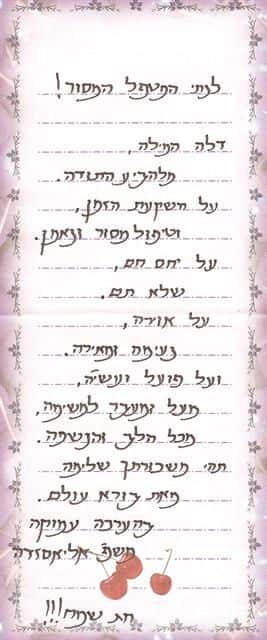 לנתי המטפל המסור!
דלה המילה,
מלהביע התודה.
על השקעת הזמן,
וטיפול מסור ונאמן.
על יחס חם,
שלא תם.
על אוירה,
נעימה ומאירה.
ועל פועל ועשיה,
מעל ומעבר למשימה,
מכל הלב והנשמה.
תהי משכורתך שלימה
מאת בורא עולם.
בהערכה עמוקה
משפ' אליאסזדה
חג שמח!!!